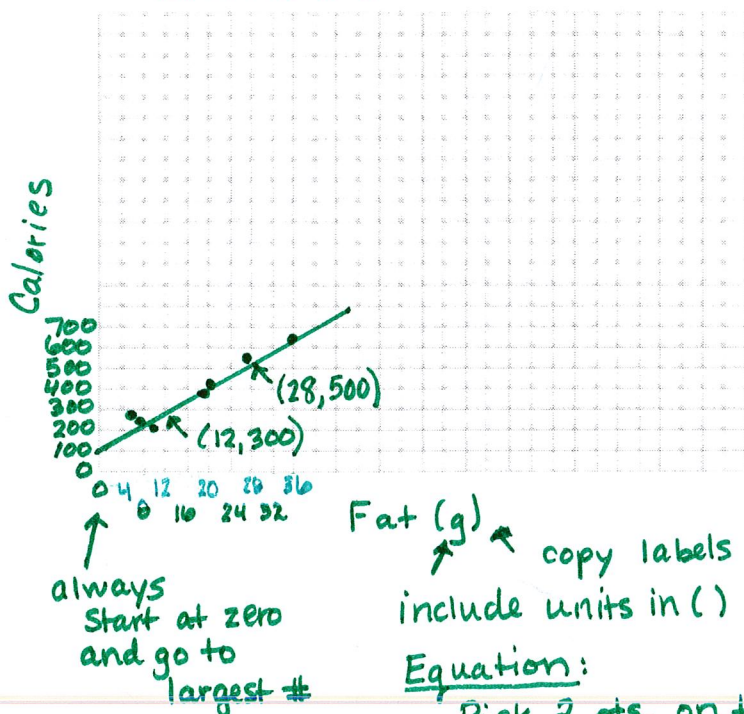 Calories
700
600
500
400
300
200
100
0
(28,500)
(12,300)
0 4 12 20 28 36
8 16 24 32
Fat (g)
copy labels
include units in ( )
always
start at zero
and go to
largest #
Equation:
Pick 2 pts. on